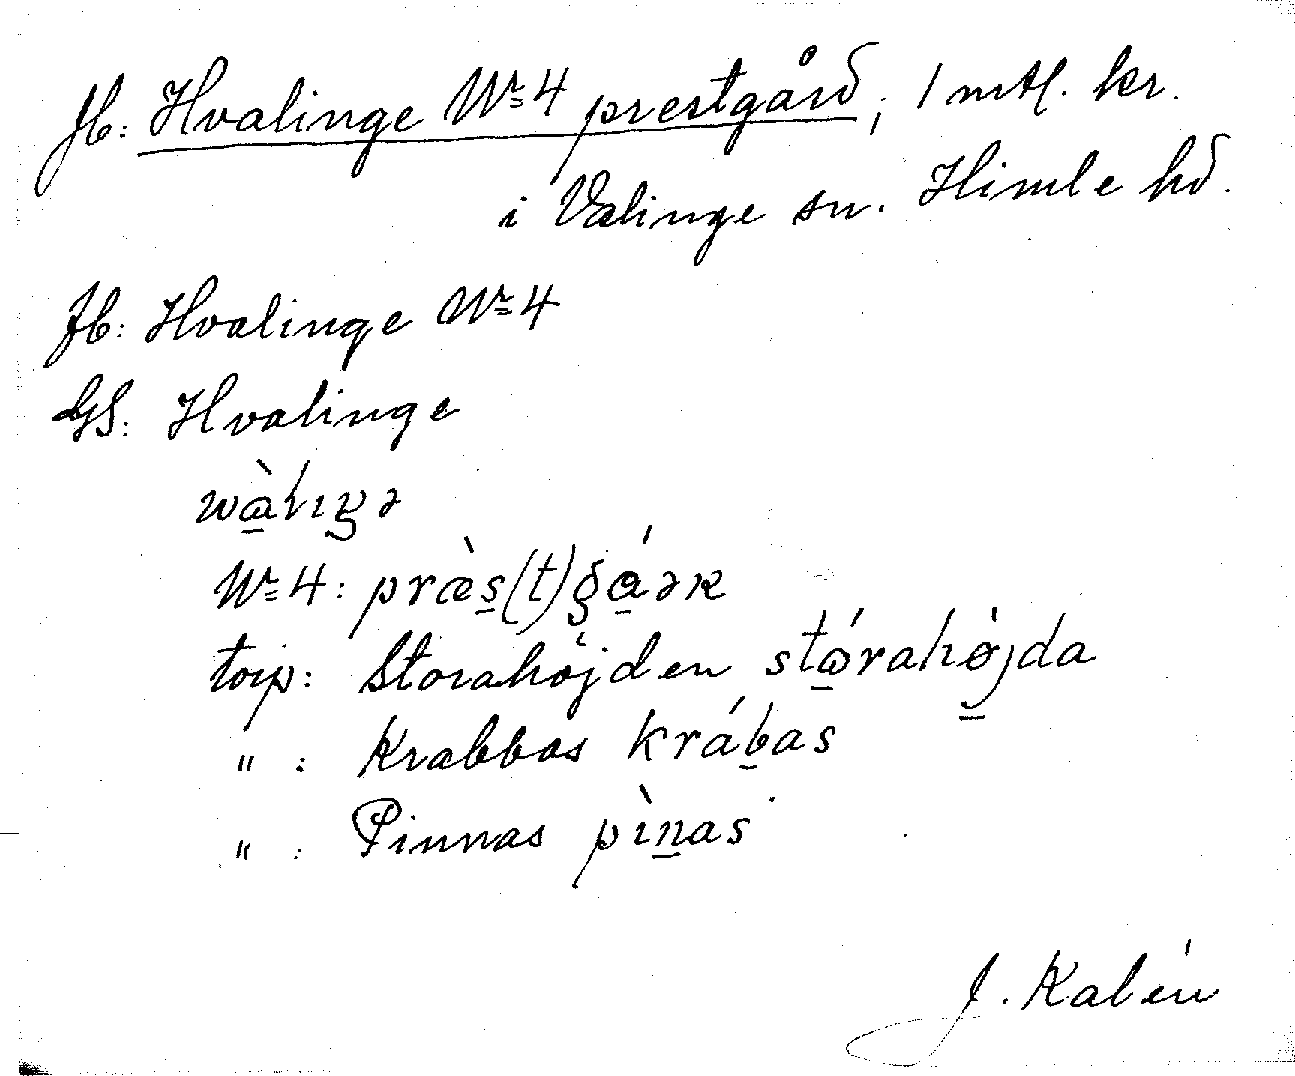 Jb: Hvalinge Nr 4 prestgård, 1 mtl. kr.
i Valinge sn. Himle hd.
Jb: Hvalinge Nr 4
GS: Hvalinge
wàlıŋə
Nr 4: præ̀s(t)gáək
torp: Storahöjden stórahö̀jda
" : Krabbas krábas
" : Pinnas pìnas
J. Kalén